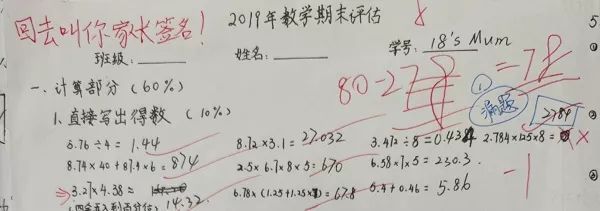 回去叫你家长签名！
2019年数学期末评估
班级：
姓名：
学号：18's Mum
80-2
=78
一、计算部分（60%）
1. 直接写出得数（10%）
漏题
2784
5.76÷4=1.44
8.72×3.1=27.032
3.472÷8=0.434
2.784×125×8=
×
8.74×40+87.4×6=874
2.5×6.7×8×5=670
6.58×7×5=230.3
3.27×4.38≈
14.32
6.78×(1.25+1.25×)=67.8
5.4+0.46=5.86
-1
(四舍五入到百分位)
5